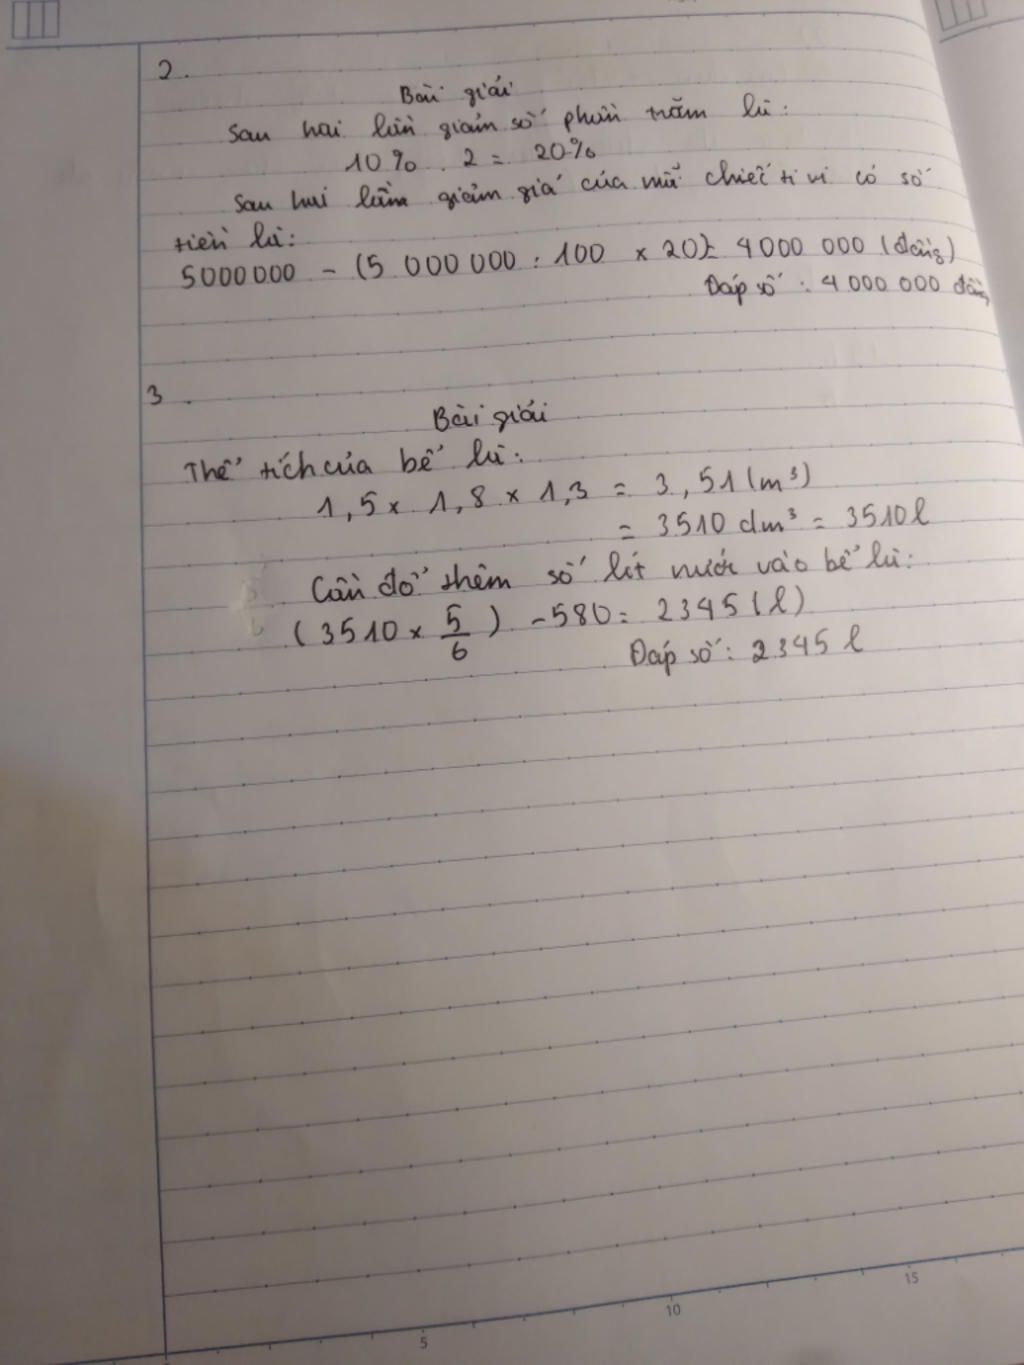 2.
Bài giải
Sau hai lần giảm số phần trăm là:
10% . 2 = 20%
Sau hai lần giảm giá của mã chiếc ti vi có số
tiền là:
5000000 - (5 000 000 : 100 x 20) = 4000 000 (đồng)
Đáp số : 4 000 000 đồng
3.
Bài giải
Thể tích của bể là:
1,5 x 1,8 x 1,3 = 3,51 (m³)
= 3510 dm³ = 3510 l
Cần đổ thêm số lít nước vào bể là:
(3510 x 5/6) - 580 = 2345 (l)
Đáp số: 2345 l
5
10
15